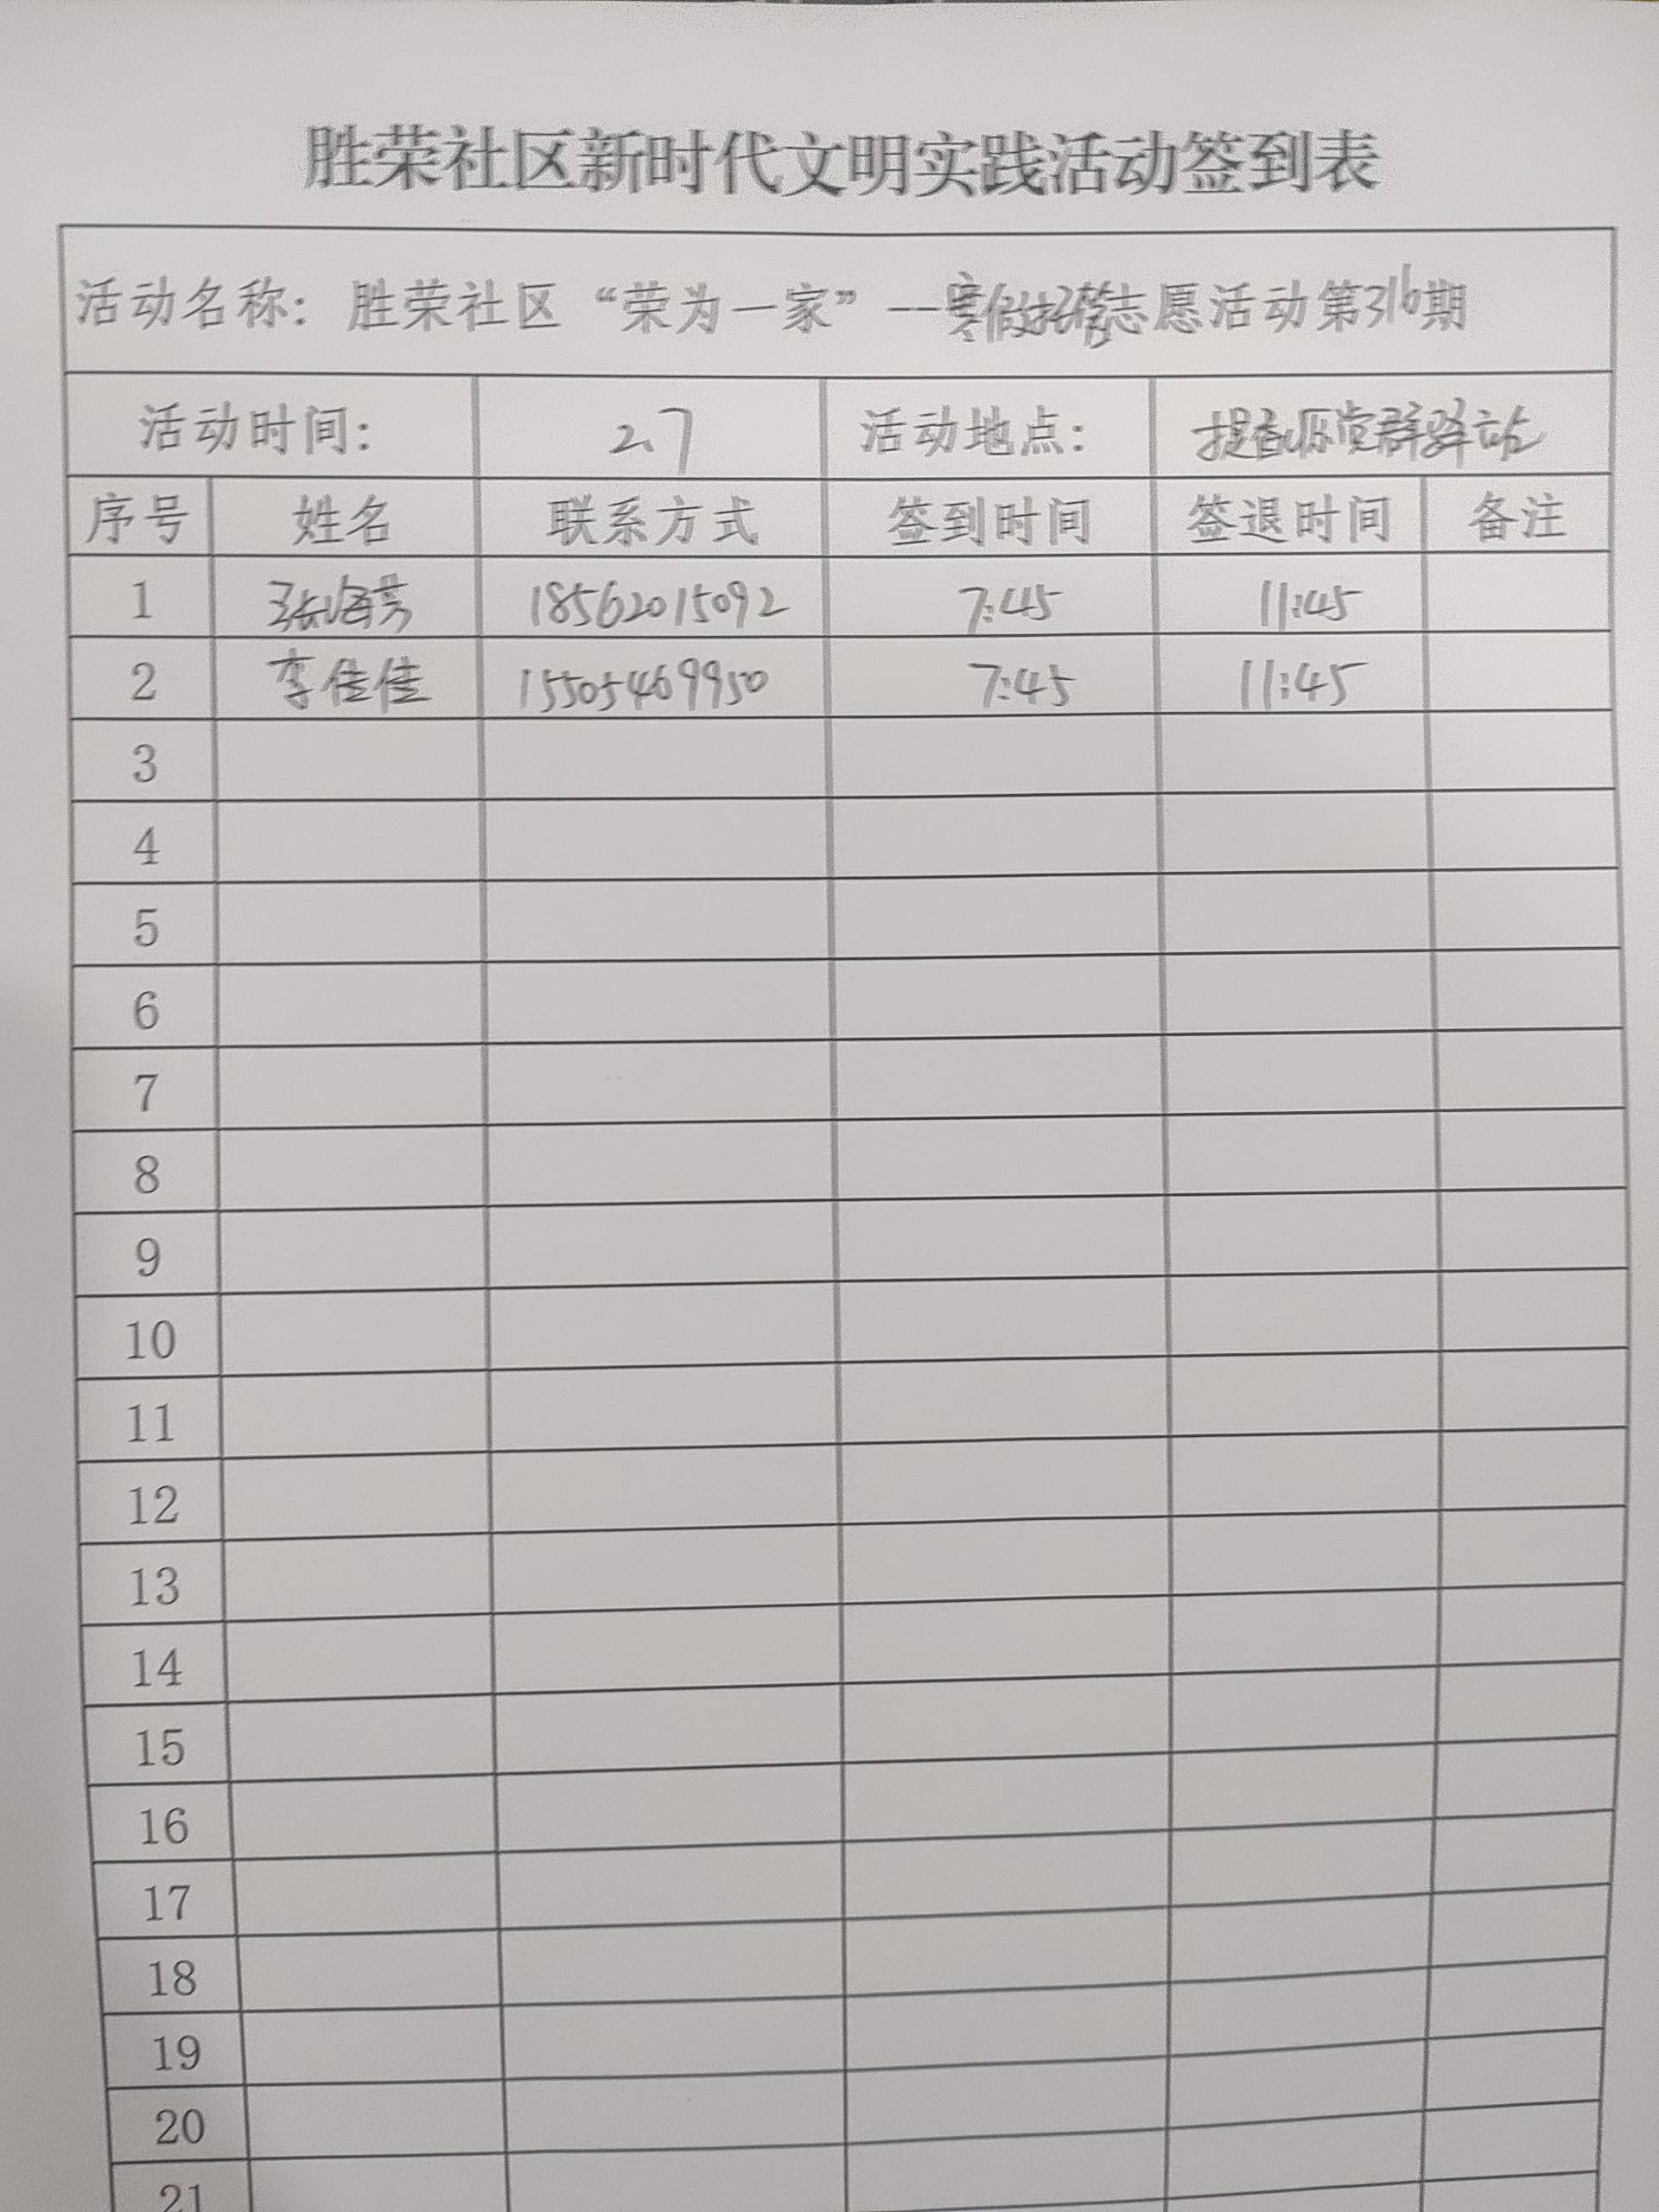 胜荣社区新时代文明实践活动签到表
活动名称：胜荣社区“荣为一家”--寒假托管志愿活动第316期
活动时间： 2.7 活动地点： 提香源党群驿站
序号 姓名 联系方式 签到时间 签退时间 备注
1 张海芳 18562015092 7:45 11:45
2 李佳佳 15505469950 7:45 11:45
3
4
5
6
7
8
9
10
11
12
13
14
15
16
17
18
19
20
21